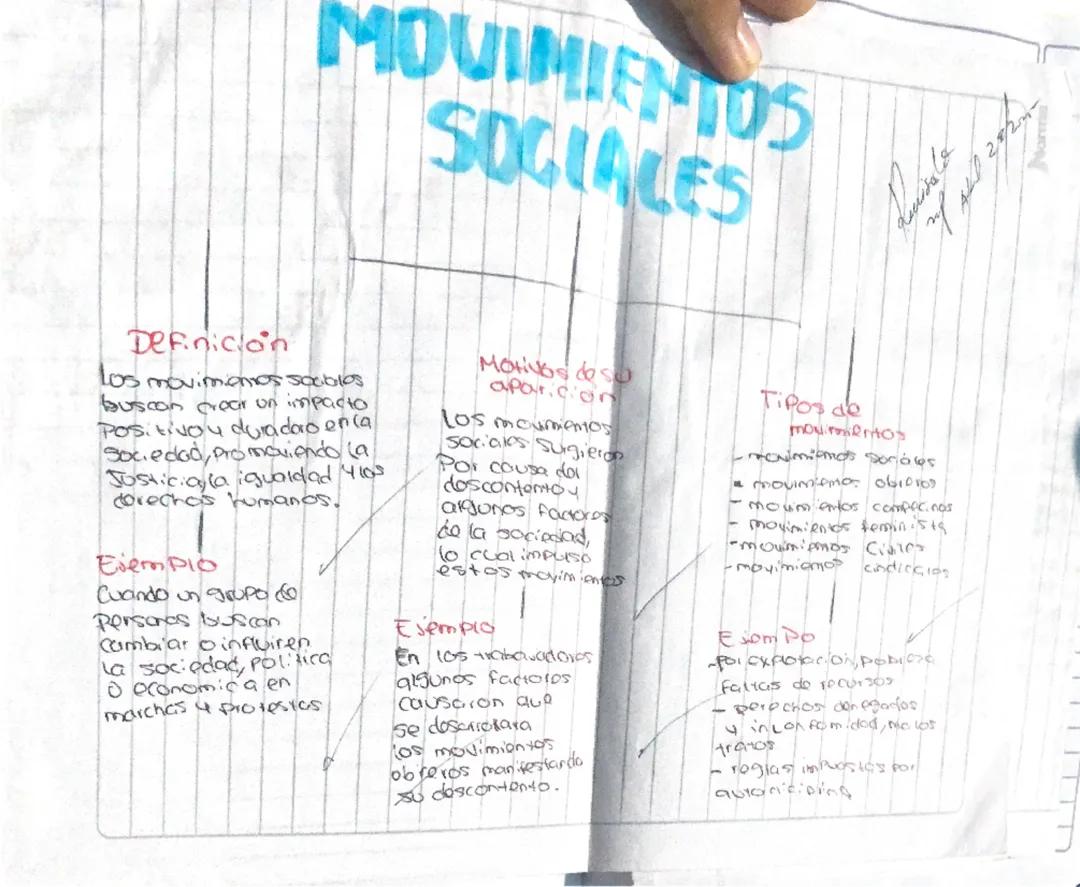 MOVIMIENTOS
SOCIALES
Revisado
Abril 28/2025
Norma
Definición
Los movimientos sociales
buscan crear un impacto
positivo y duradero en la
sociedad, promoviendo la
Justicia, la igualdad y los
derechos humanos.
Ejemplo
Cuando un grupo de
personas buscan
cambiar o influir en
la sociedad, política
o economica en
marchas y protestas
Motivos de su
aparición
Los movimientos
sociales surgieron
Por causa del
descontento y
algunos factores
de la sociedad,
lo cual impulso
estos movimientos
Ejemplo
En los trabajadores
algunos factores
causaron que
se desarrollara
los movimientos
obreros manifestando
su descontento.
Tipos de
movimientos
- movimientos sociales
- movimientos obreros
- movimientos campecinos
- movimientos feminista
- movimientos civiles
- movimientos cindicales
Ejemplo
- por explotación, pobreza
faltas de recursos
- Derechos denegados
y inconfomidad, malos
tratos
- reglas impuestas por